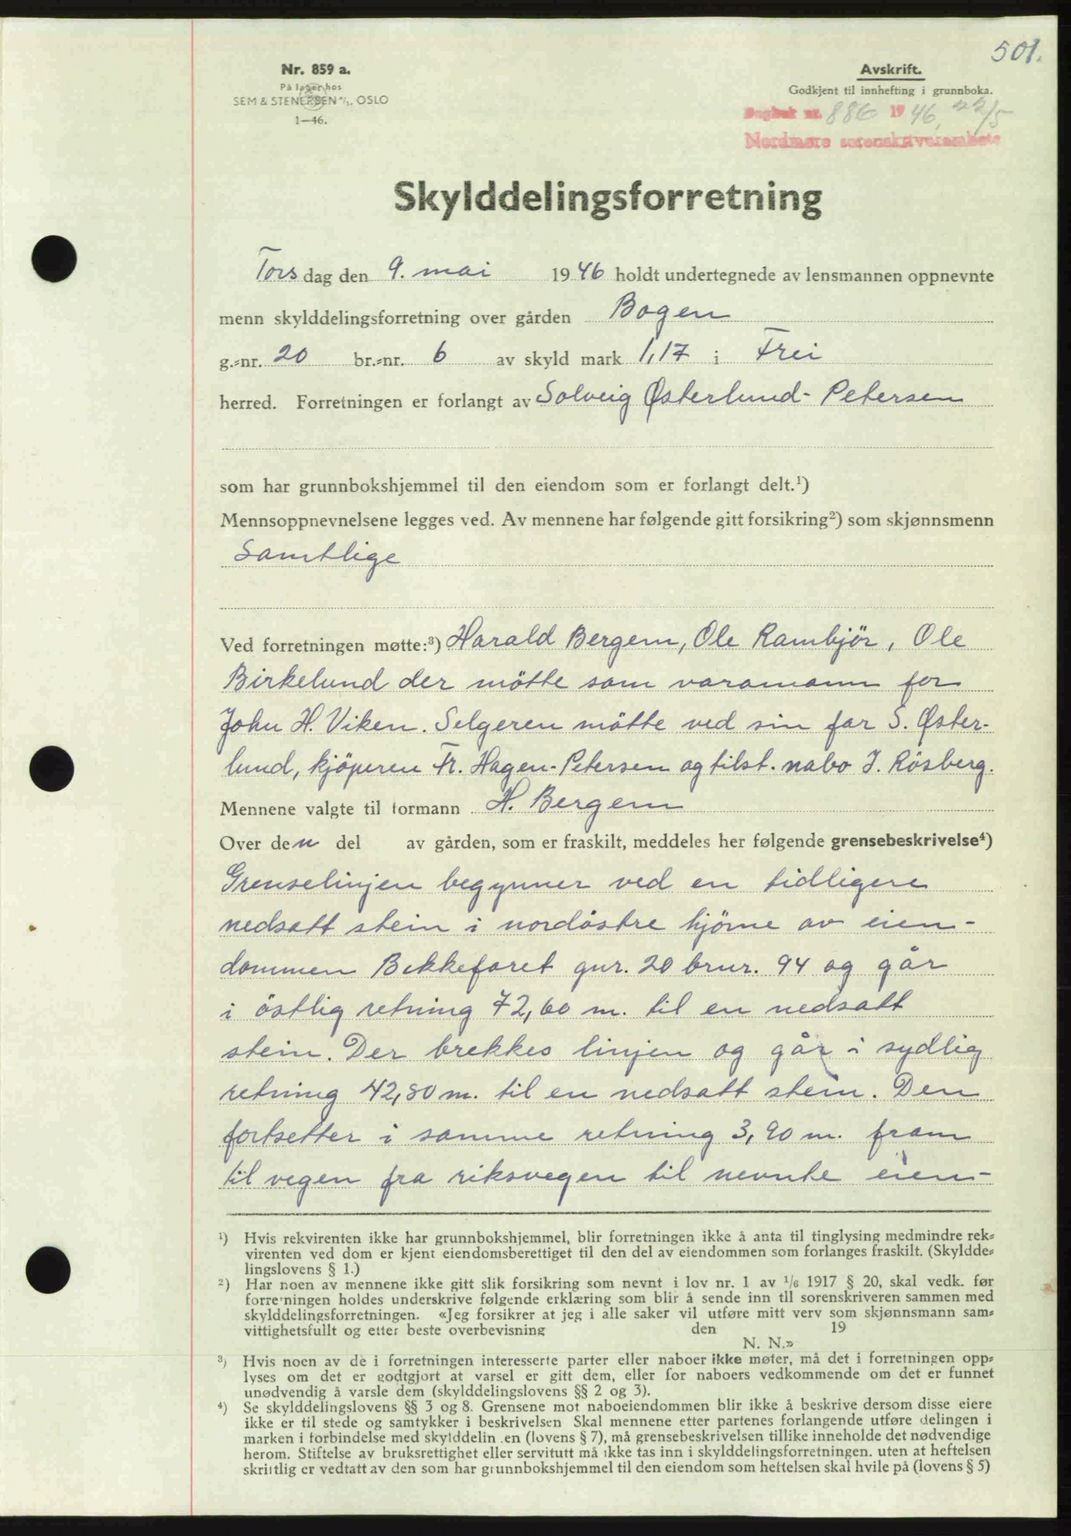 501.
Nr. 859 a.
På lager hos
SEM & STENERSEN A/S, OSLO
1—46.
Avskrift.
Godkjent til innhefting i grunnboka.
Dagbok nr. 886 1946, 22/5
Nordmøre sorenskriverembete
Skylddelingsforretning
Torsdag den 9. mai 1946 holdt undertegnede av lensmannen oppnevnte
menn skylddelingsforretning over gården Bogen
g.-nr. 20 br.-nr. 6 av skyld mark 1,17 i Frei
herred. Forretningen er forlangt av Solveig Østerlund-Petersen
som har grunnbokshjemmel til den eiendom som er forlangt delt.¹)
Mennsoppnevnelsene legges ved. Av mennene har følgende gitt forsikring²) som skjønnsmenn
Samtlige
Ved forretningen møtte:³) Harald Bergem, Ole Rambjör, Ole
Birkelund der mötte som varamann for
John H. Viken. Selgeren mötte ved sin far S. Øster-
lund, kjöperen Fr. Hagen-Petersen og tilst. nabo J. Rösberg.
Mennene valgte til formann H. Bergem
Over den del av gården, som er fraskilt, meddeles her følgende grensebeskrivelse⁴)
Grenselinjen begynner ved en tidligere
nedsatt stein i nordöstre hjörne av eien-
dommen Bekkefaret gnr. 20 brnr. 94 og går
i östlig retning 72,60 m. til en nedsatt
stein. Der brekkes linjen og går i sydlig
retning 42,80 m. til en nedsatt stein. Den
fortsetter i samme retning 3,90 m. fram
til vegen fra riksvegen til nevnte eien-
¹) Hvis rekvirenten ikke har grunnbokshjemmel, blir forretningen ikke å anta til tinglysing medmindre rek-
virenten ved dom er kjent eiendomsberettiget til den del av eiendommen som forlanges fraskilt. (Skyldde-
lingslovens § 1.)
²) Har noen av mennene ikke gitt slik forsikring som nevnt i lov nr. 1 av 1/6 1917 § 20, skal vedk. før
forretningen holdes underskrive følgende erklæring som blir å sende inn til sorenskriveren sammen med
skylddelingsforretningen. «Jeg forsikrer at jeg i alle saker vil utføre mitt verv som skjønnsmann sam-
vittighetsfullt og etter beste overbevisning den 19
N. N.»
³) Hvis noen av de i forretningen interesserte parter eller naboer ikke møter, må det i forretningen opp-
lyses om det er godtgjort at varsel er gitt dem, eller for naboers vedkommende om det er funnet
unødvendig å varsle dem (skylddelingslovens §§ 2 og 3).
⁴) Se skylddelingslovens §§ 3 og 8. Grensene mot naboeiendommen blir ikke å beskrive dersom disse eiere
ikke er til stede og samtykker i beskrivelsen Skal mennene etter partenes forlangende utføre delingen i
marken i forbindelse med skylddelingen (lovens § 7), må grensebeskrivelsen tillike inneholde det nødvendige
herom. Stiftelse av bruksrettighet eller servitutt må ikke tas inn i skylddelingsforretningen, uten at heftelsen
skriftlig er vedtatt av den som har grunnbokshjemmel til den eiendom som heftelsen skal hvile på (lovens § 5)